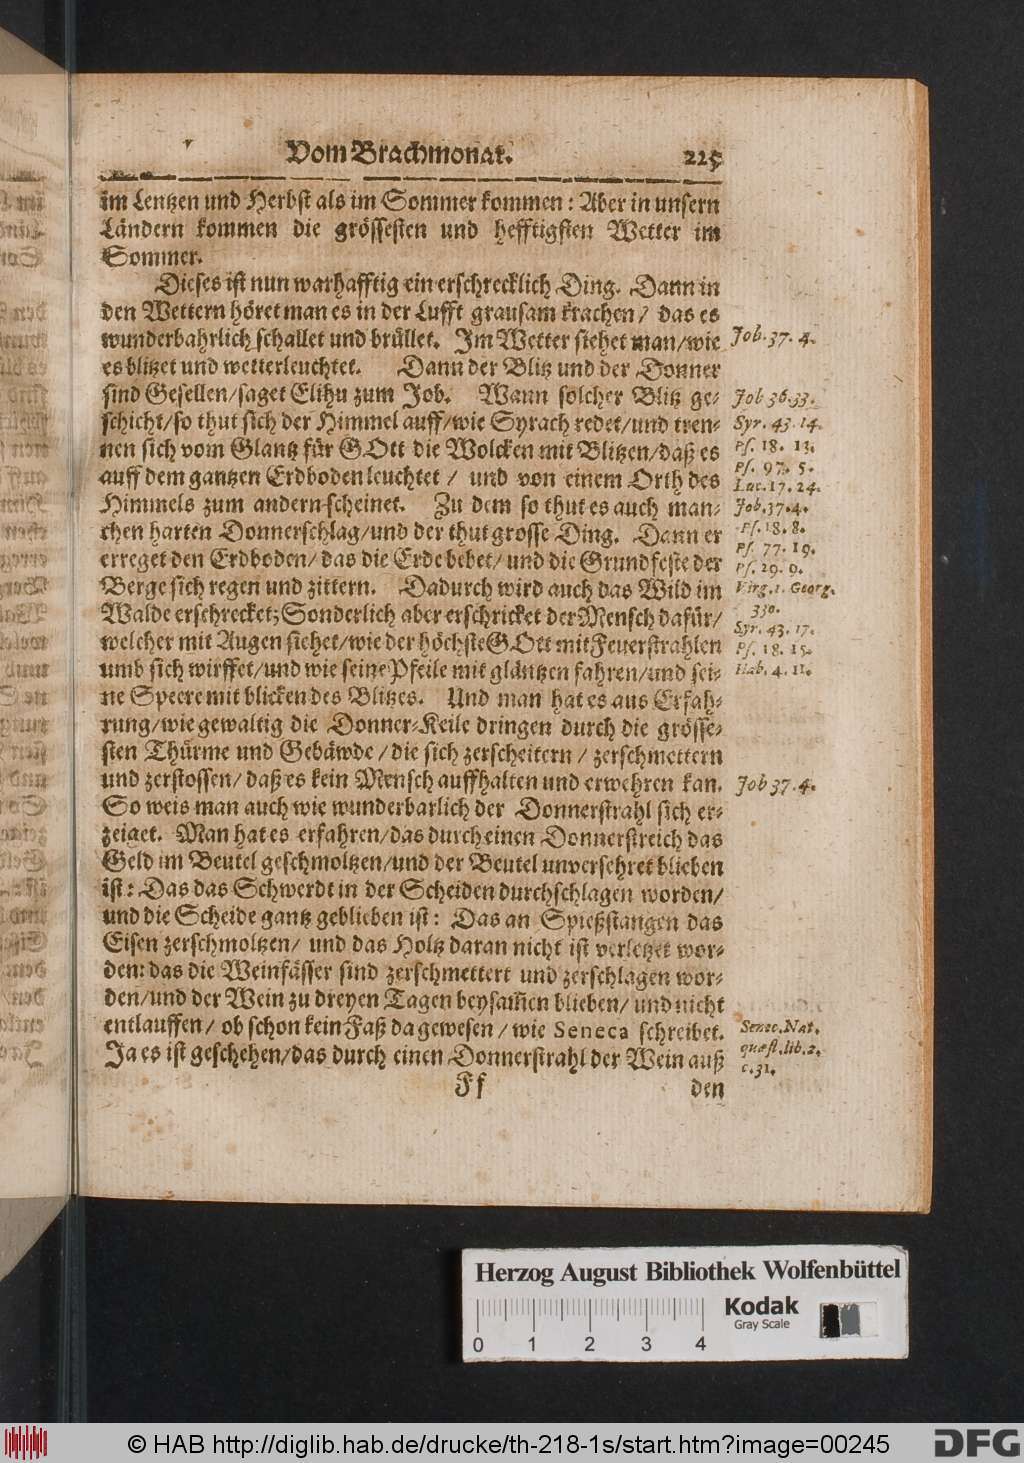 Vom Brachmonat. 225
im Lentzen und Herbst als im Sommer kommen: Aber in unsern
Ländern kommen die grössesten und hefftigsten Wetter im
Sommer.
Dieses ist nun warhafftig ein erschrecklich Ding. Dann in
den Wettern höret man es in der Lufft grausam krachen/ das es
wunderbahrlich schallet und brüllet. Im Wetter siehet man/wie
es blitzet und wetterleuchtet. Dann der Blitz und der Donner
sind Gesellen/saget Elihu zum Job. Wann solcher Blitz ge-
schicht/so thut sich der Himmel auff/wie Syrach redet/und tren-
nen sich vom Glantz für GOtt die Wolcken mit Blitzen/daß es
auff dem gantzen Erdboden leuchtet / und von einem Orth des
Himmels zum andern scheinet. Zu dem so thut es auch man-
chen harten Donnerschlag/und der thut grosse Ding. Dann er
erreget den Erdboden/das die Erde bebet/und die Grundfeste der
Berge sich regen und zittern. Dadurch wird auch das Wild im
Walde erschrecket; Sonderlich aber erschricket der Mensch dafür/
welcher mit Augen siehet/wie der höchste GOtt mit Feuerstrahlen
umb sich wirffet/und wie seine Pfeile mit gläntzen fahren/und sei-
ne Speere mit blicken des Blitzes. Und man hat es aus Erfah-
rung/wie gewaltig die Donner-Keile dringen durch die grösse-
sten Thürme und Gebäwde/die sich zerscheitern / zerschmettern
und zerstossen/daß es kein Mensch auffhalten und erwehren kan.
So weis man auch wie wunderbarlich der Donnerstrahl sich er-
zeiget. Man hat es erfahren/das durch einen Donnerstreich das
Geld im Beutel geschmoltzen/und der Beutel unversehret blieben
ist: Das das Schwerdt in der Scheiden durchschlagen worden/
und die Scheide gantz geblieben ist: Das an Spießstangen das
Eisen zerschmoltzen/ und das Holtz daran nicht ist verletzet wor-
den: das die Weinfässer sind zerschmettert und zerschlagen wor-
den/und der Wein zu dreyen Tagen beysam̃en blieben/ und nicht
entlauffen/ ob schon kein Faß da gewesen/ wie Seneca schreibet.
Ja es ist geschehen/das durch einen Donnerstrahl der Wein auß
Ff den
Job. 37. 4.
Job 36. 33.
Syr. 43. 14.
Ps. 18. 13.
Ps. 97. 5.
Luc. 17. 24.
Job. 37. 4.
Ps. 18. 8.
Ps. 77. 19.
Ps. 29. 9.
Virg. 1. Georg.
330.
Syr. 43. 17.
Ps. 18. 15.
Hab. 4. 11.
Job 37. 4.
Senec. Nat.
quæst. lib. 2.
c. 31.
Herzog August Bibliothek Wolfenbüttel
Kodak
Gray Scale
0 1 2 3 4
© HAB http://diglib.hab.de/drucke/th-218-1s/start.htm?image=00245
DFG